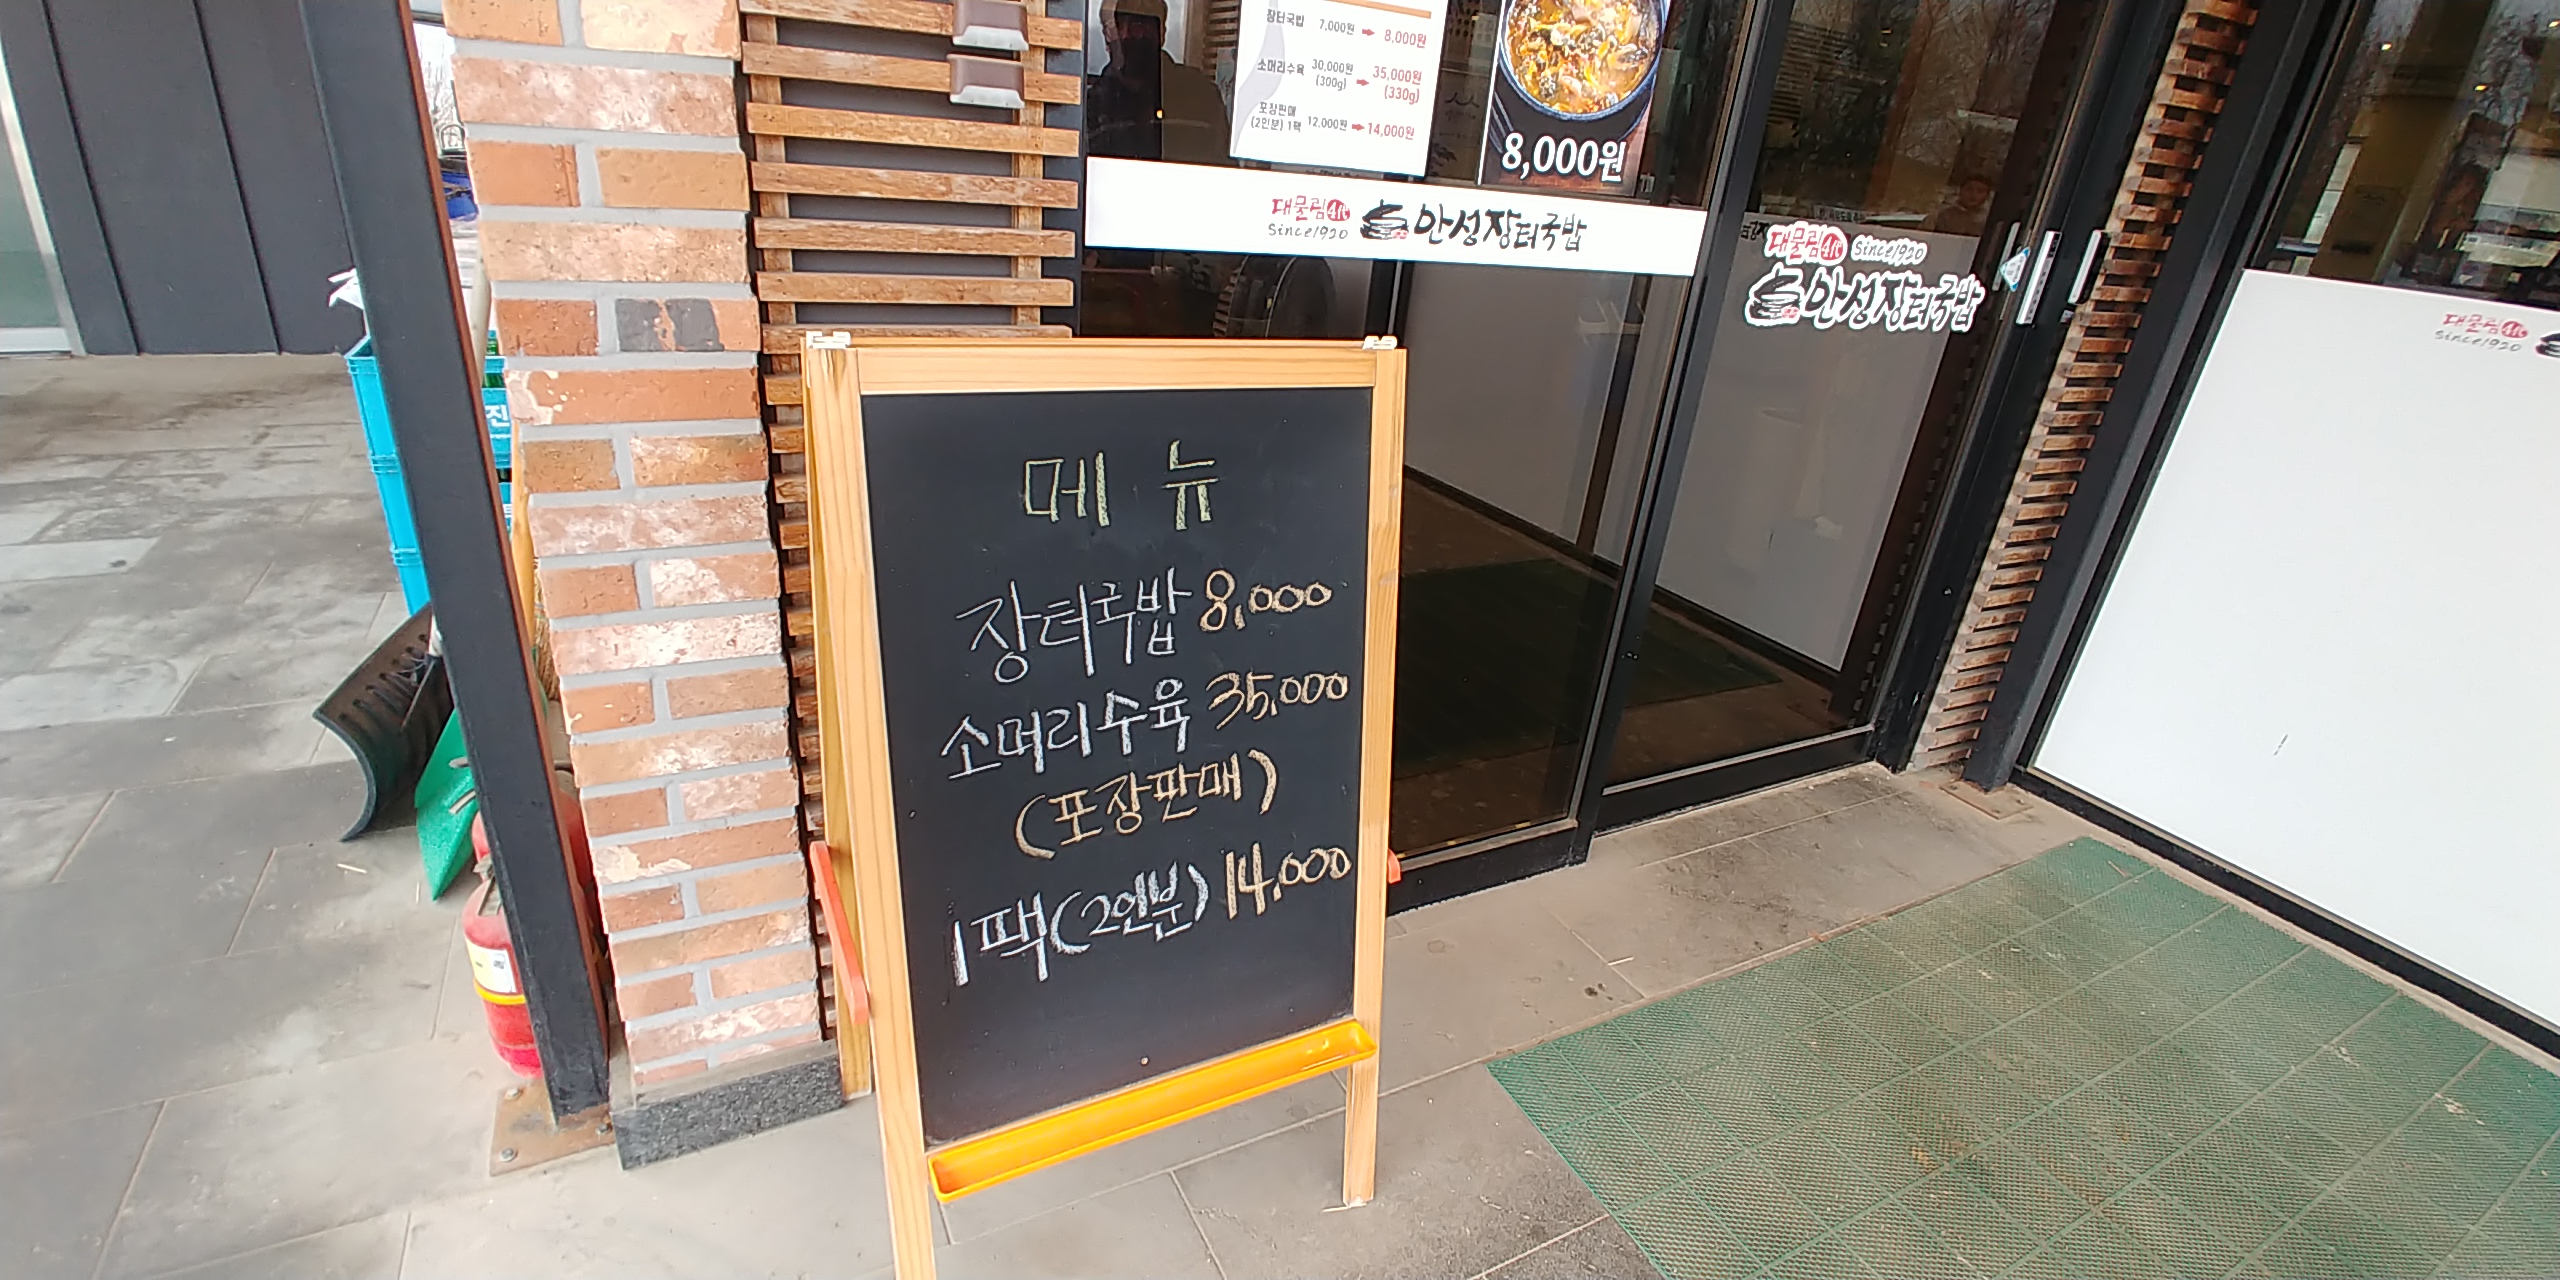 장터국밥 7,000원 ➡ 8,000원
소머리수육 30,000원 (300g) ➡ 35,000원 (330g)
포장판매 (2인분) 1팩 12,000원 ➡ 14,000원
8,000원
대물림 4代
Since1920
안성장터국밥
대물림 4代 Since1920
안성장터국밥
대물림 4代
Since1920
진
메뉴
장터국밥 8,000
소머리수육 35,000
(포장판매)
1팩(2인분) 14,000